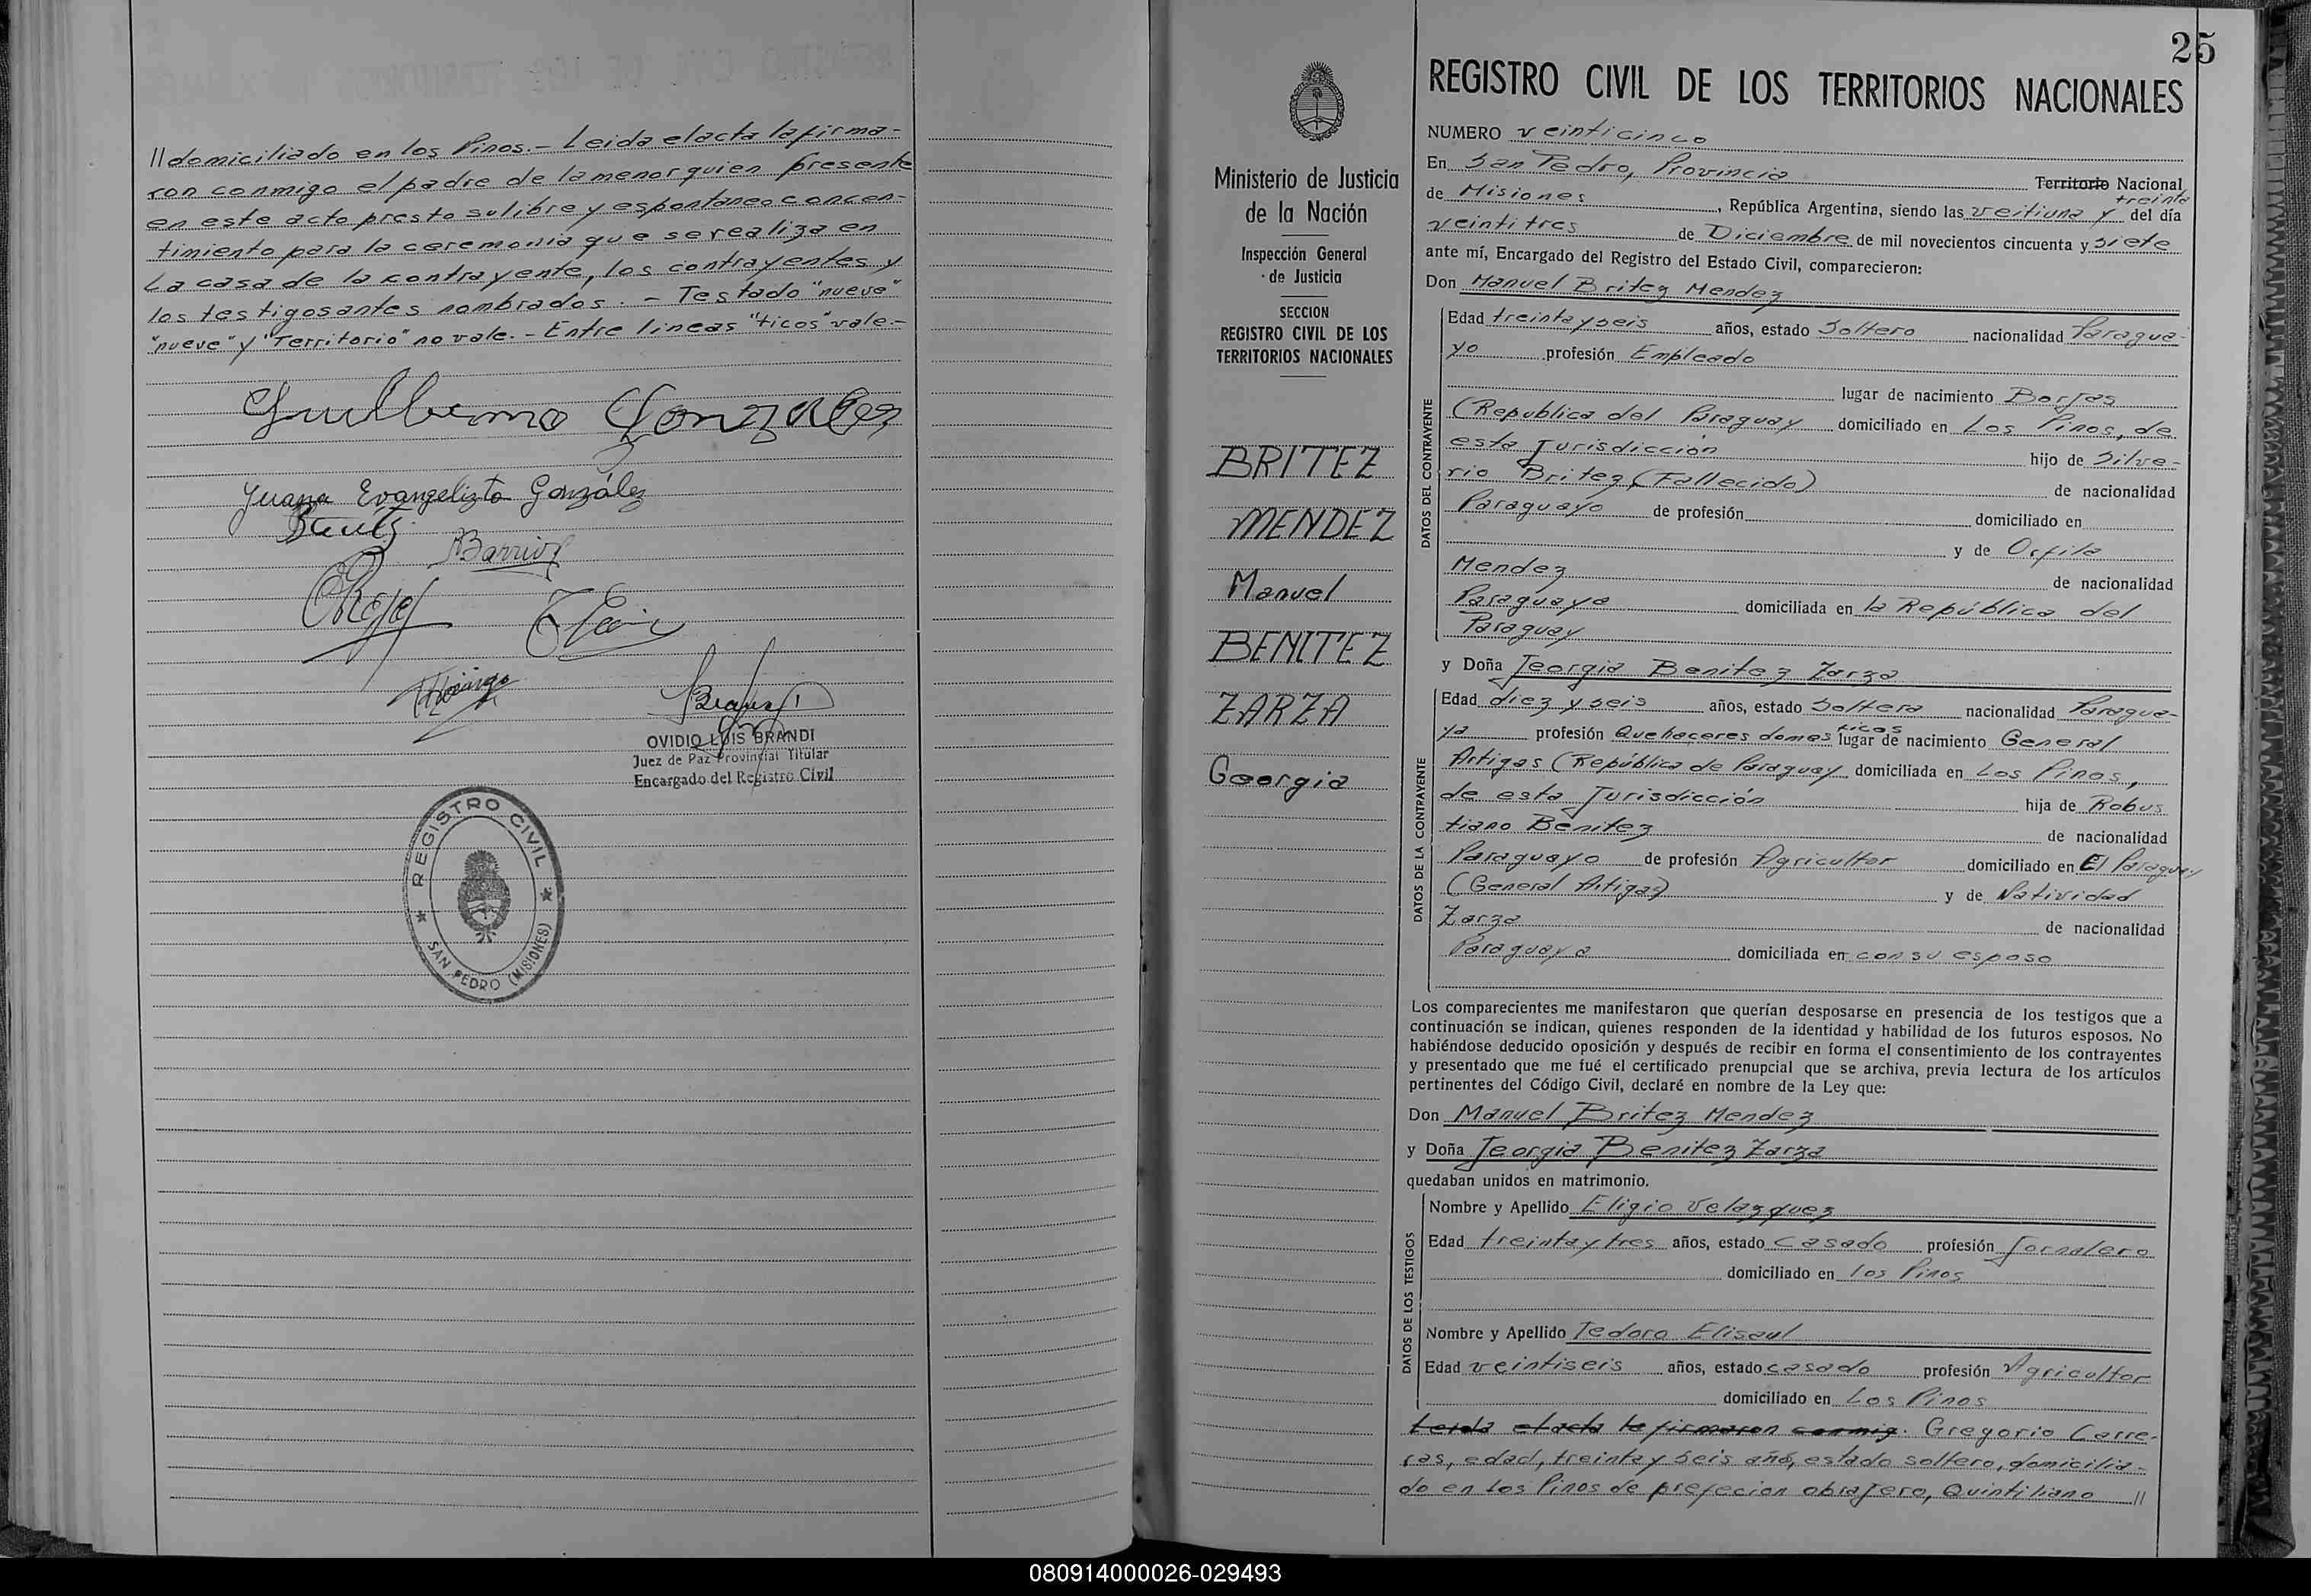 //domiciliado en los Pinos.- Leida el acta la firma-
ron conmigo el padre de la menor quien presente
en este acto presto su libre y espontaneo concen-
timiento para la ceremonia que se realiza en
La casa de la contrayente, los contrayentes y
los testigos antes nombrados. - Testado "nueve"
"nueve" y "Territorio" no vale. - Entre lineas "ticos" vale.-
Guillermo Gonzalez
Juana Evangelista González
Barrios
OVIDIO LUIS BRANDI
Juez de Paz Provincial Titular
Encargado del Registro Civil
REGISTRO CIVIL
SAN PEDRO (MISIONES)
25
Ministerio de Justicia
de la Nación
Inspección General
de Justicia
SECCION
REGISTRO CIVIL DE LOS
TERRITORIOS NACIONALES
BRITEZ
MENDEZ
Manuel
BENITEZ
ZARZA
Georgia
REGISTRO CIVIL DE LOS TERRITORIOS NACIONALES
NUMERO veinticinco
En San Pedro, Provincia Territorio Nacional
de Misiones, República Argentina, siendo las veitiuna y treinta del día
veintitres de Diciembre de mil novecientos cincuenta y siete
ante mí, Encargado del Registro del Estado Civil, comparecieron:
Don Manuel Britez Mendez
DATOS DEL CONTRAYENTE
Edad treinta y seis años, estado Soltero nacionalidad Paragua-
yo profesión Empleado
lugar de nacimiento Borjas
(Republica del Paraguay domiciliado en Los Pinos, de
esta Jurisdicción hijo de Silve-
rio Britez (Fallecido) de nacionalidad
Paraguayo de profesión domiciliado en
y de Orfila
Mendez de nacionalidad
Paraguaya domiciliada en la República del
Paraguay
y Doña Jeorgia Benitez Zarza
DATOS DE LA CONTRAYENTE
Edad diez y seis años, estado Soltera nacionalidad Paragua-
ya profesión Quehaceres domesticos lugar de nacimiento General
Artigas (República de Paraguay domiciliada en Los Pinos,
de esta Jurisdicción hija de Robus
tiano Benitez de nacionalidad
Paraguayo de profesión Agricultor domiciliado en El Paraguay
(General Artigas) y de Natividad
Zarza de nacionalidad
Paraguaya domiciliada en con su esposo
Los comparecientes me manifestaron que querían desposarse en presencia de los testigos que a
continuación se indican, quienes responden de la identidad y habilidad de los futuros esposos. No
habiéndose deducido oposición y después de recibir en forma el consentimiento de los contrayentes
y presentado que me fué el certificado prenupcial que se archiva, previa lectura de los artículos
pertinentes del Código Civil, declaré en nombre de la Ley que:
Don Manuel Britez Mendez
y Doña Jeorgia Benitez Zarza
quedaban unidos en matrimonio.
DATOS DE LOS TESTIGOS
Nombre y Apellido Eligio Velazquez
Edad treinta y tres años, estado casado profesión Jornalero
domiciliado en los Pinos
Nombre y Apellido Tedoro Elisaul
Edad veintiseis años, estado casado profesión Agricultor
domiciliado en Los Pinos
Leida el acta la firmaron conmig. Gregorio Carre-
ras, edad, treinta y seis año, estado soltero, domicilia-
do en Los Pinos de profecion obrajero, Quintiliano //
080914000026-029493